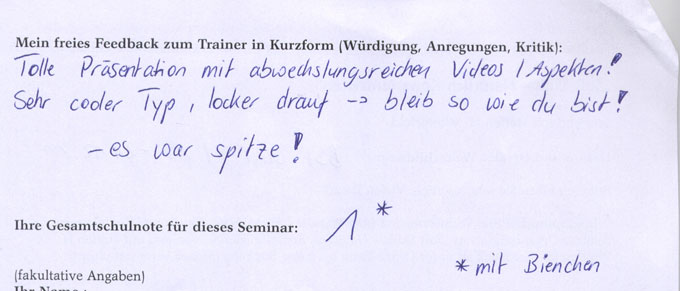 Mein freies Feedback zum Trainer in Kurzform (Würdigung, Anregungen, Kritik):
Tolle Präsentation mit abwechslungsreichen Videos / Aspekten!
Sehr cooler Typ, locker drauf -> bleib so wie du bist!
- es war spitze!
Ihre Gesamtschulnote für dieses Seminar: 1*
*mit Bienchen
(fakultative Angaben)
Ihr Name: